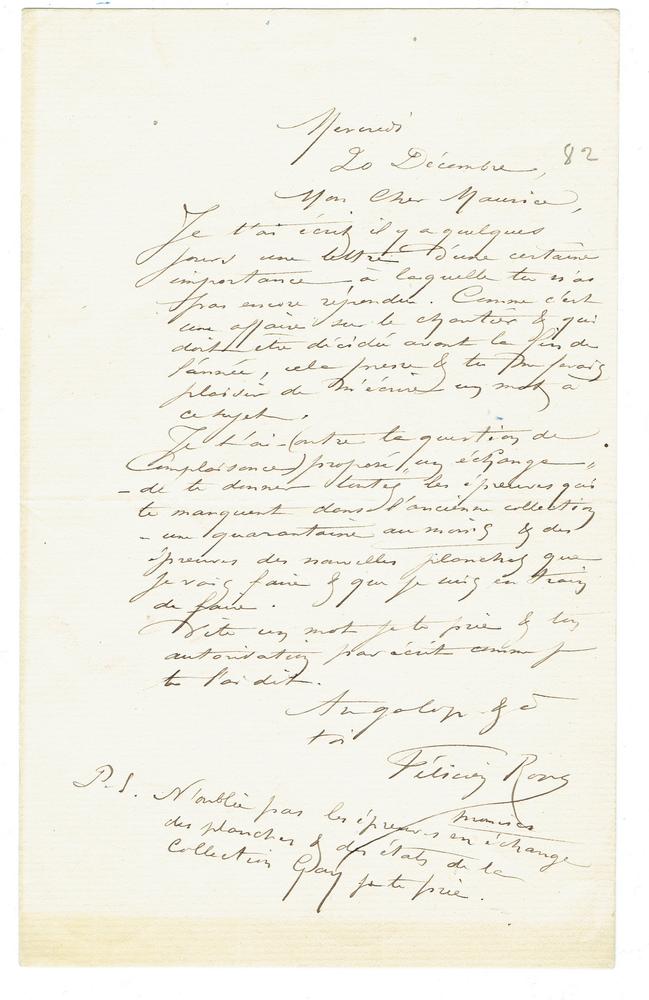 Mercredi
20 Décembre, 82
Mon Cher Maurice,
Je t'ai écrit il y a quelques
jours une lettre d'une certaine
importance à laquelle tu n'as
pas encore répondu. Comme c'est
une affaire sur le chantier & qui
doit être décidée avant la fin de
l'année, cela presse & tu me ferais
plaisir de m'écrire un mot à
ce sujet.
Je t'ai (outre la question de
Complaisance) proposé "un échange"
- de te donner toutes les épreuves qui
te manquent dans l'ancienne collection
- une quarantaine au moins & des
épreuves des nouvelles planches que
je vais faire & que je suis en train
de faire.
Vite un mot je te prie & ton
autorisation par écrit comme je
te l'ai dit.
Au galop & à
toi
Félicien Rops
P.S. N'oublie pas les épreuves promises en échange
des planches & des états de la
Collection Gay je te prie.